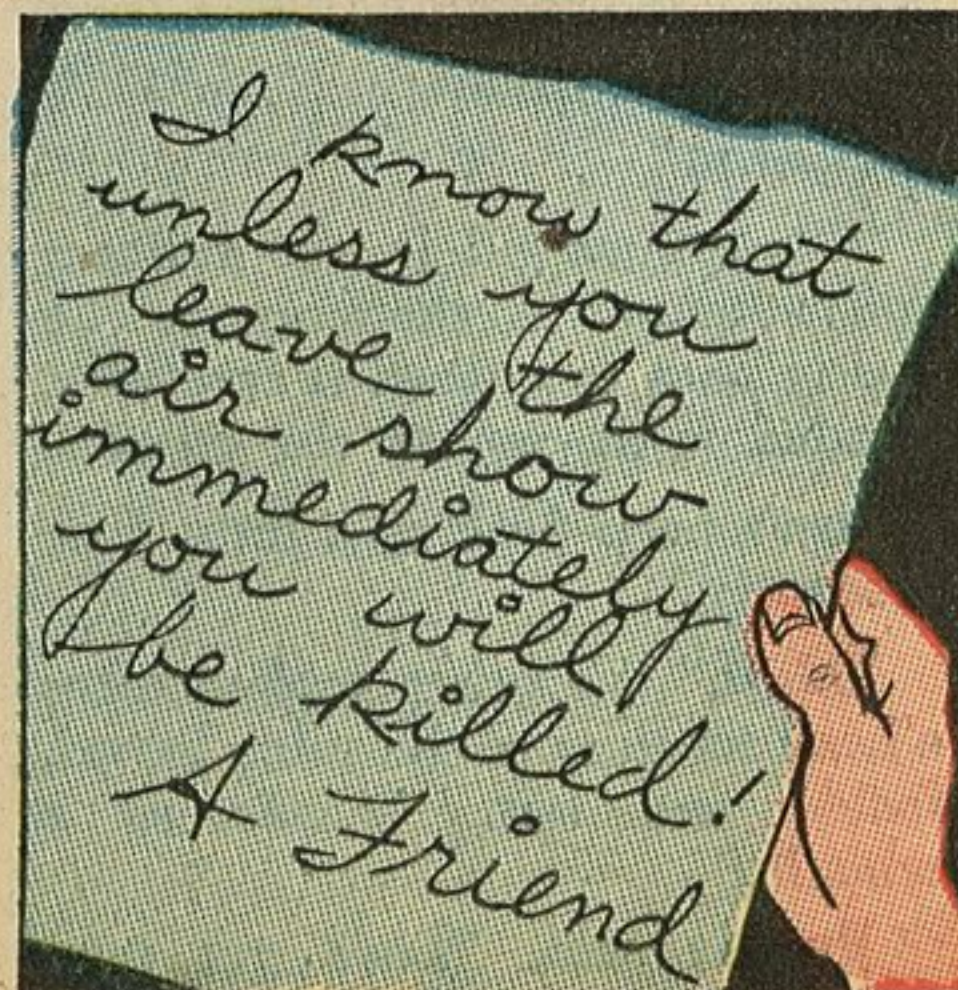 I know that
unless you
leave the
air show
immediately
you will
be killed!
A Friend